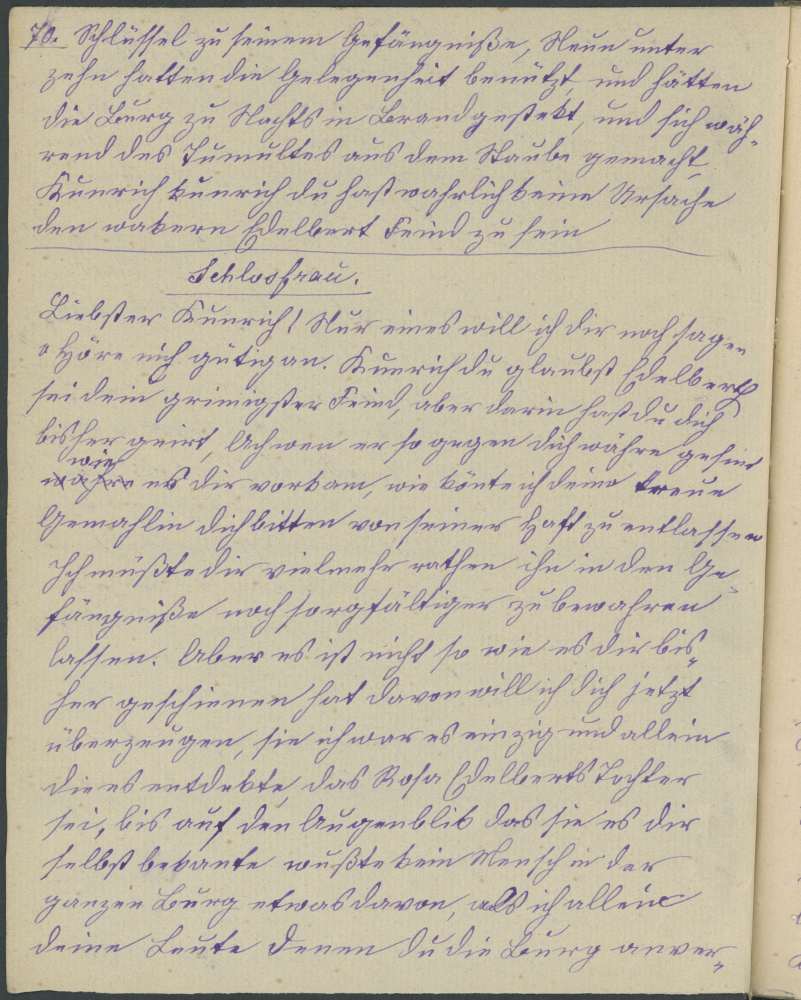 70. Schlüssel zu seinem Gefängniße, Neun unter
zehn hatten die Gelegenheit benützt, und hätten
die Burg zu Nachts in Brand gestekt, und sich wäh-
rend des Tumultes aus dem Staube gemacht
Kunrich kunrich du hast wahrlich keine Ursache
den wakern Edelbert Feind zu sein
Schlosfrau.
Liebster Kunrich! Nur eines will ich dir noch sagen
o Höre mich gütig an. Kunrich du glaubst Edelbert
sei dein grimigster Feind, aber darin hast du dich
bisher geirt, Ach wen er so gegen dich währe gesint
wie
währe es dir vorkam, wie könte ich deine treue
Gemahlin dich bitten von seiner Haft zu entlassen
Ich müßte dir vielmehr rathen ihn in den Ge-
fängniße noch sorgfältiger zu bewahren
lassen. Aber es ist nicht so wie es dir bis-
her geschienen hat davon will ich dich jetzt
überzeugen, sie ich war es einzig und allein
die es entdekte, das Rosa Edelberts Tochter
sei, bis auf den Augenblik das sie es dir
selbst bekante wußte kein Mensch in der
ganzen Burg etwas davon, als ich allein
deine Leute denen du die Burg anver-